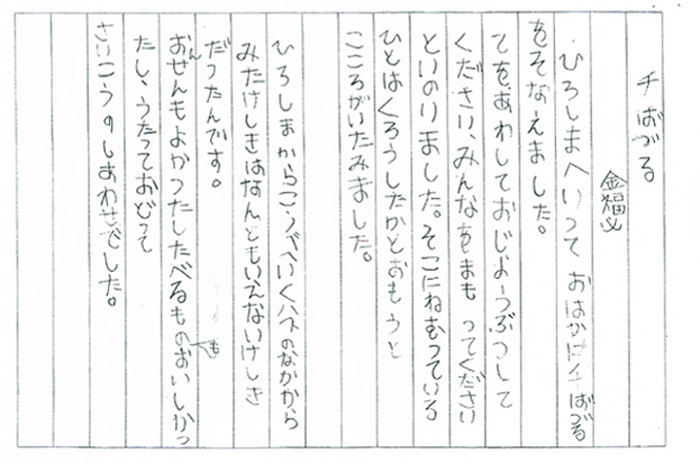 チばづる
金福必
ひろしまへいって おはかにチばづる
をそなえました。
てをあわしておじよーうぶつして
ください、みんなをまもってください
といのりました。そこにねむっている
ひとはくろうしたかとおもうと
こころがいたみました。
ひろしまからこうべへいくバスのなかから
みたけしきはなんともいえないけしき
だったんです。
おんせんもよかつたしたべるものもおいしかっ
たし、うたっておどって
さいこうのしあわせでした。